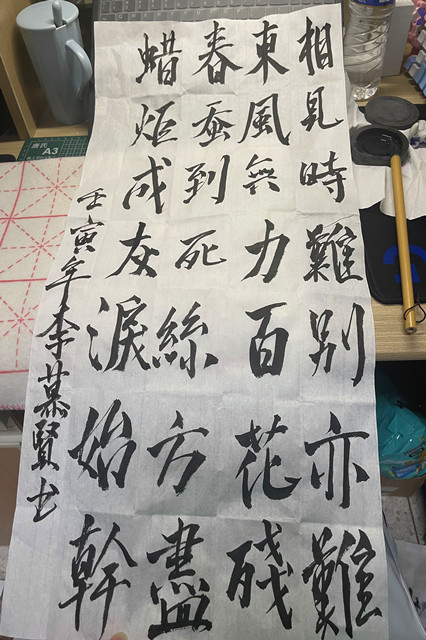 相見時難別亦難
東風無力百花殘
春蚕到死絲方盡
蜡炬成灰淚始幹
壬寅年李慕賢书
A3